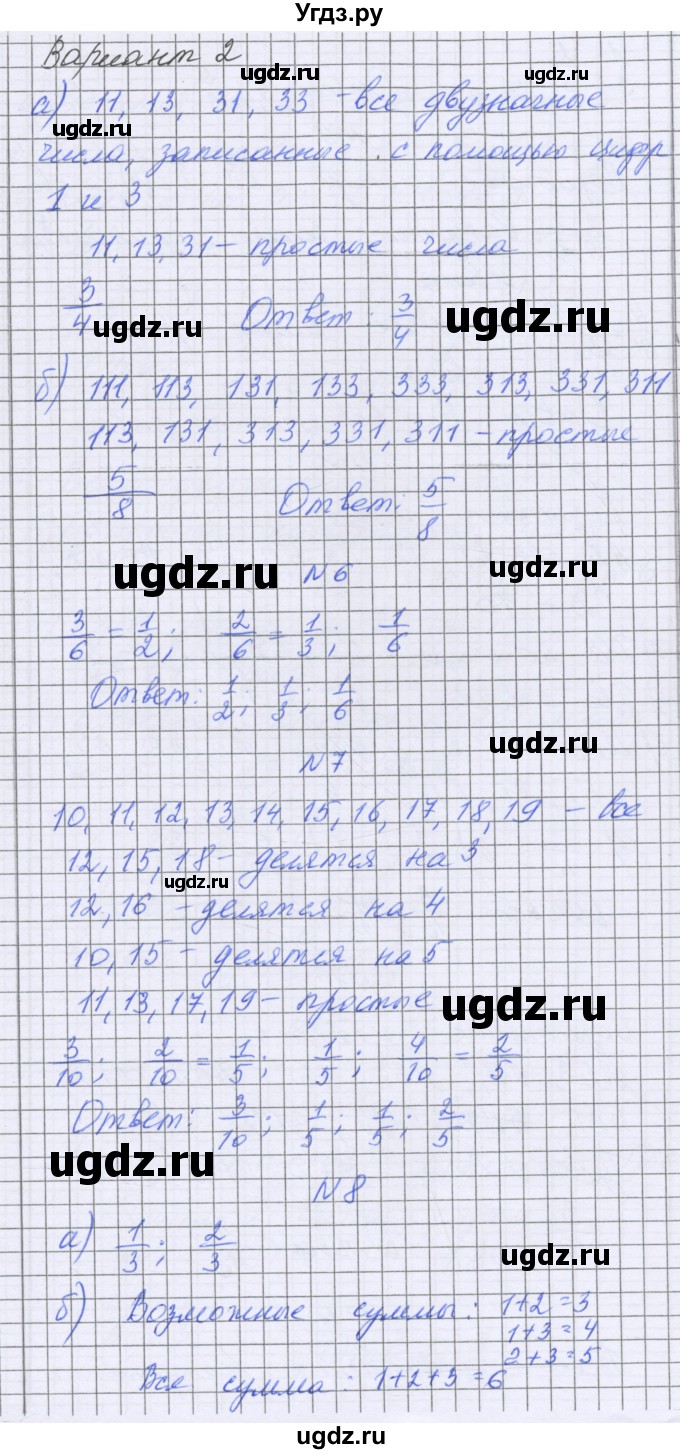 Угдз.ру
Вариант 2
ugdz.ru
ugdz.ru
а) 11, 13, 31, 33 - все двузначные
ugdz.ru
числа, записанные с помощью цифр
1 и 3
11, 13, 31 - простые числа
3/4
ugdz.ru
Ответ: 3/4
ugdz.ru
б) 111, 113, 131, 133, 333, 313, 331, 311
113, 131, 313, 331, 311 - простые
5/8 Ответ: 5/8
ugdz.ru
N 6
ugdz.ru
3/6 = 1/2; 2/6 = 1/3; 1/6
Ответ: 1/2; 1/3; 1/6
N 7
ugdz.ru
10, 11, 12, 13, 14, 15, 16, 17, 18, 19 - все
12, 15, 18 - делятся на 3
ugdz.ru
12, 16 - делятся на 4
10, 15 - делятся на 5
11, 13, 17, 19 - простые
ugdz.ru
3/10; 2/10 = 1/5; 1/5; 4/10 = 2/5
Ответ: 3/10; 1/5; 1/5; 2/5
ugdz.ru
N 8
а) 1/3; 2/3
ugdz.ru
б) Возможные суммы: 1+2=3
1+3=4
2+3=5
Вся сумма: 1+2+3=6
ugdz.ru